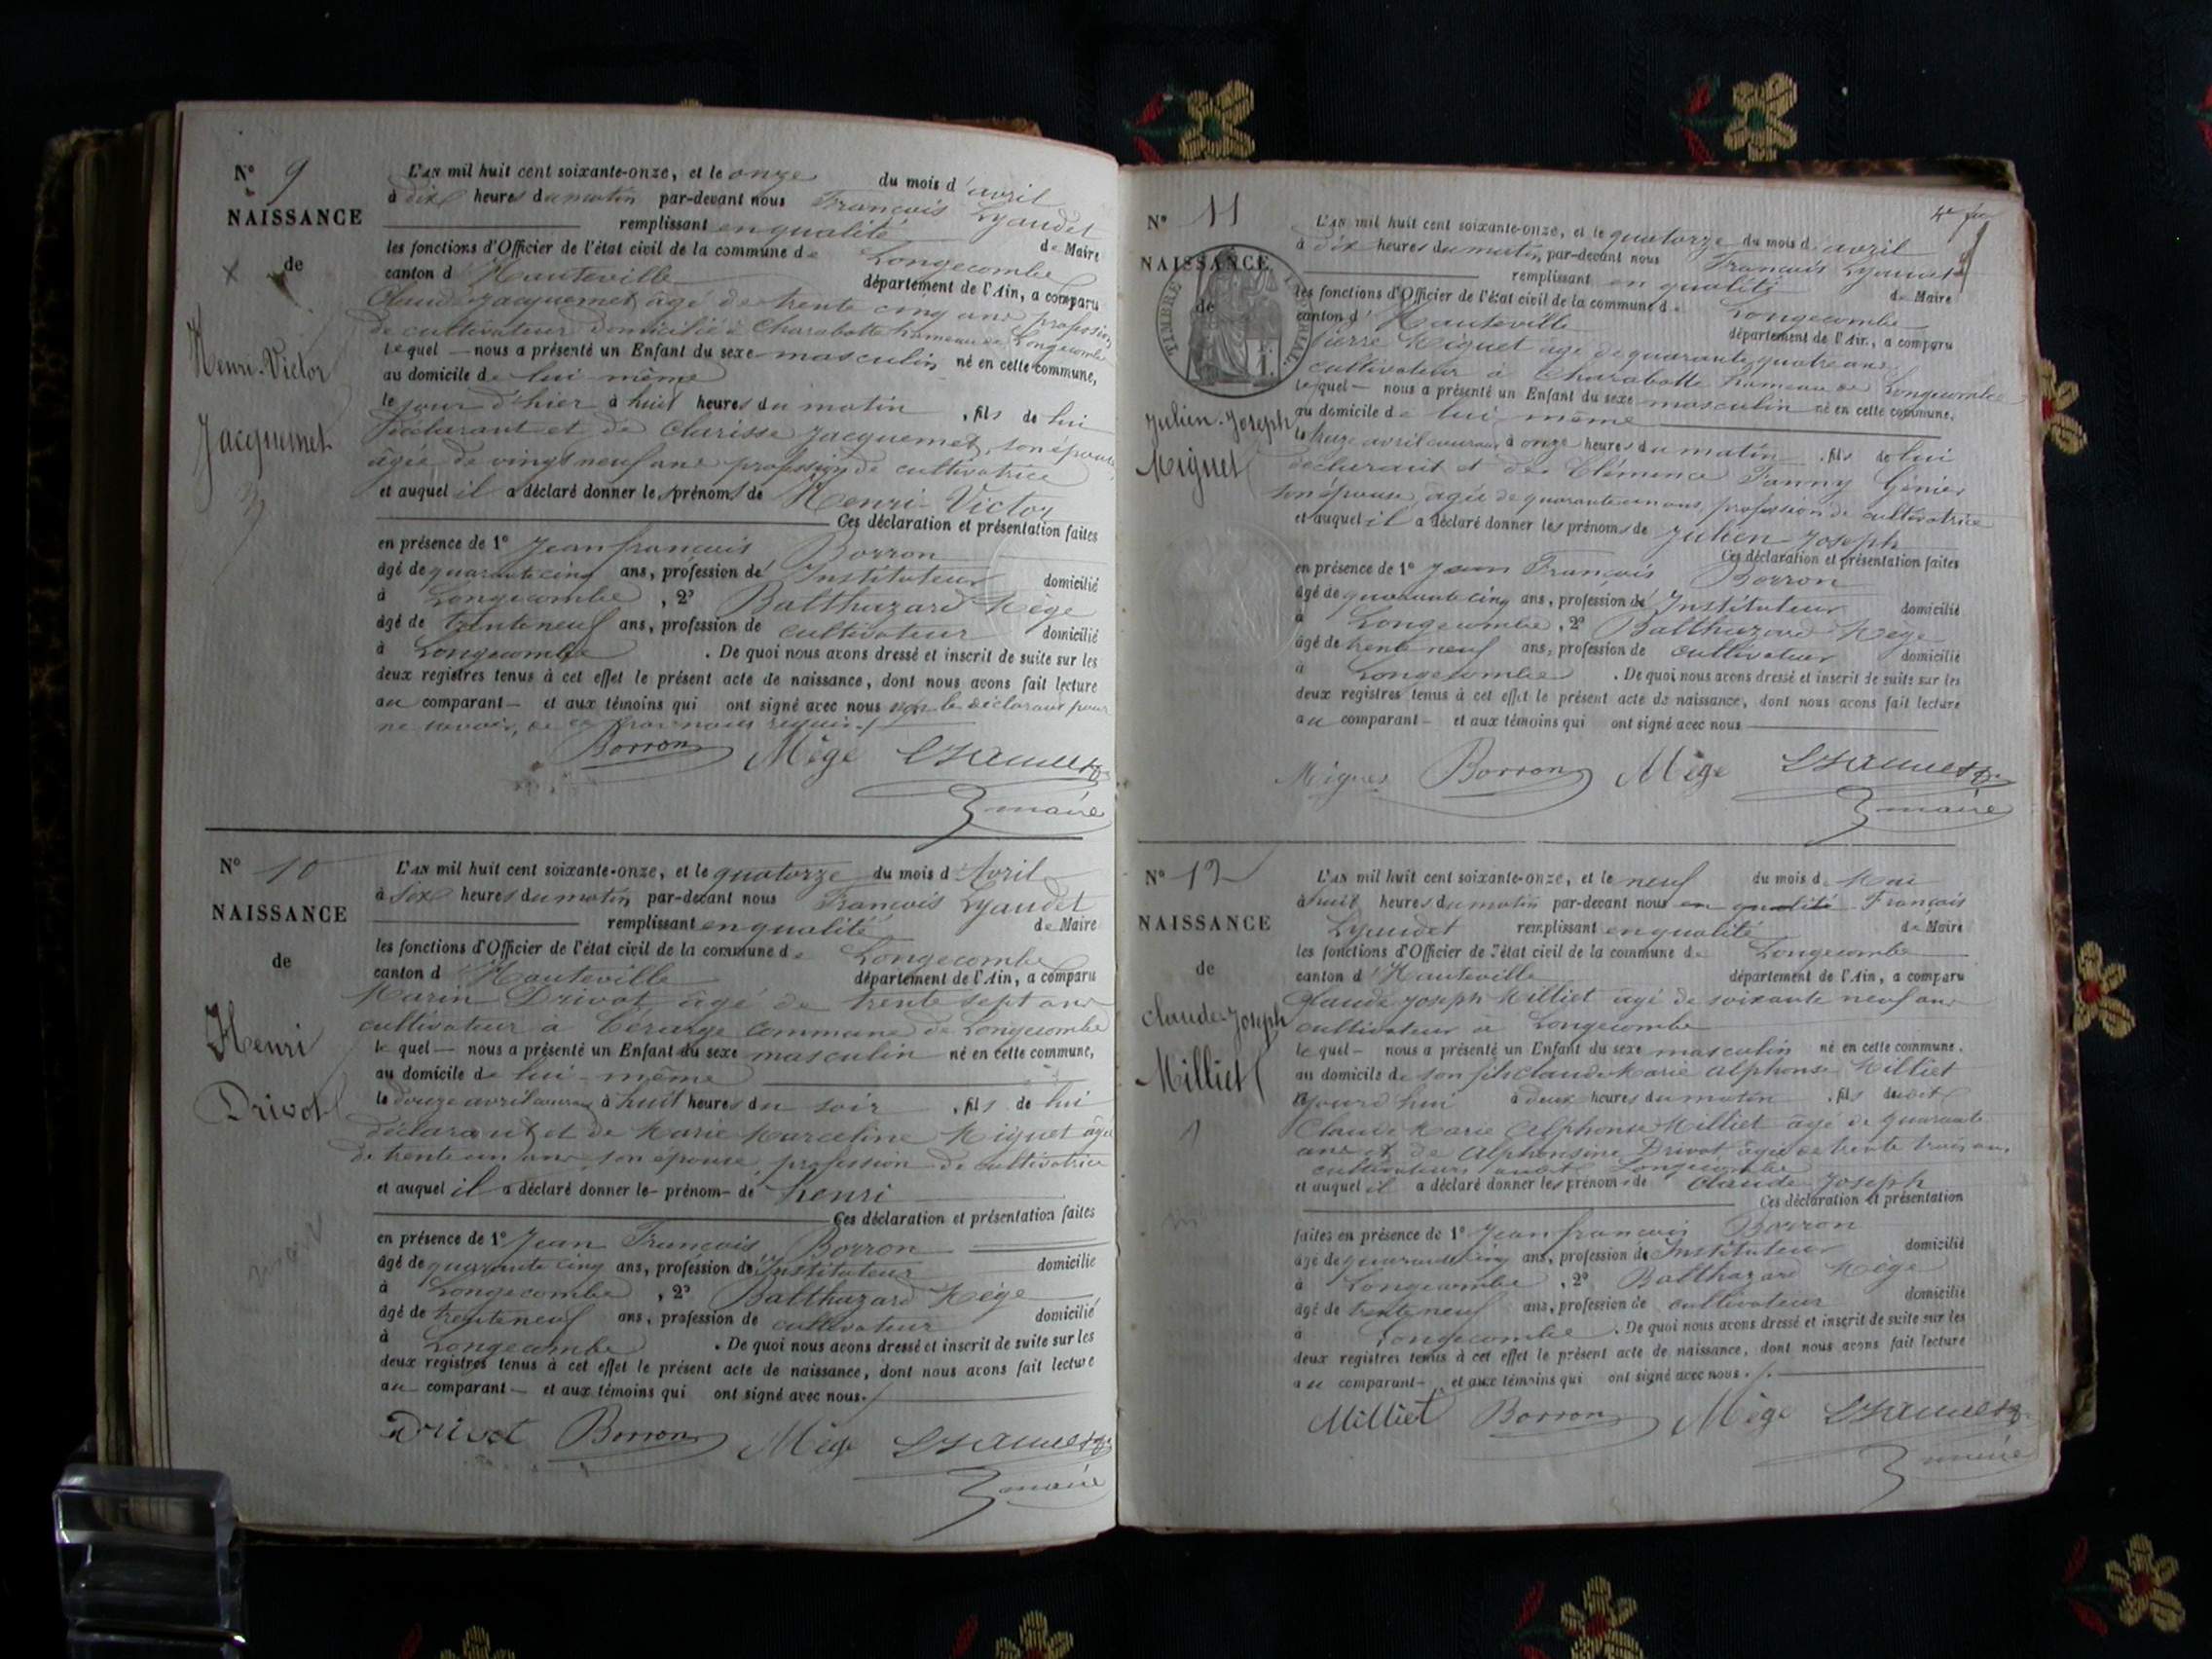 N° 9
NAISSANCE
de
Henri-Victor
Jacquemet
L'AN mil huit cent soixante-onze, et le onze du mois d'avril
à dix heures du matin par-devant nous François Lyaudet
remplissant en qualité de Maire
les fonctions d'Officier de l'état civil de la commune de Longecombe
canton d'Hauteville département de l'Ain, a comparu
Claude Jacquemet âgé de trente cinq ans profession
de cultivateur domicilié à Charabotte hameau de Longecombe
lequel — nous a présenté un Enfant du sexe masculin né en cette commune,
au domicile de lui même
le jour d'hier à huit heures du matin, fils de lui
déclarant et de Clarisse Jacquemet, son épouse
âgée de vingt neuf ans profession de cultivatrice
et auquel il a déclaré donner les prénoms de Henri-Victor
Ces déclaration et présentation faites
en présence de 1° Jean françois Borron
âgé de quarante cinq ans, profession de Instituteur domicilié
à Longecombe, 2° Balthazard Mège
âgé de trente neuf ans, profession de cultivateur domicilié
à Longecombe. De quoi nous avons dressé et inscrit de suite sur les
deux registres tenus à cet effet le présent acte de naissance, dont nous avons fait lecture
au comparant — et aux témoins qui ont signé avec nous non le déclarant pour
ne savoir, de ce par nous requis./
Borron Mège Lyaudet
maire
N° 10
NAISSANCE
de
Henri
Drivot
L'AN mil huit cent soixante-onze, et le quatorze du mois d'Avril
à six heures du matin, par-devant nous François Lyaudet
remplissant en qualité de Maire
les fonctions d'Officier de l'état civil de la commune de Longecombe
canton d'Hauteville département de l'Ain, a comparu
Marin Drivot âgé de trente sept ans
cultivateur à commune de Longecombe
lequel — nous a présenté un Enfant du sexe masculin né en cette commune,
au domicile de lui-même
le douze avril courant à huit heures du soir, fils de lui
déclarant et de Marie Marceline Miguet âgée
de trente un ans son épouse, profession de cultivatrice
et auquel il a déclaré donner le- prénom- de henri
Ces déclaration et présentation faites
en présence de 1° Jean François Borron
âgé de quarante cinq ans, profession de Instituteur domicilié
à Longecombe, 2° Balthazard Mège
âgé de trente neuf ans, profession de cultivateur domicilié
à Longecombe. De quoi nous avons dressé et inscrit de suite sur les
deux registres tenus à cet effet le présent acte de naissance, dont nous avons fait lecture
au comparant — et aux témoins qui ont signé avec nous./
Drivot Borron Mège Lyaudet
maire
N° 11
NAISSANCE
de
TIMBRE IMPERIAL
Julien-Joseph
Miguet
L'AN mil huit cent soixante-onze, et le quatorze du mois d'avril
à dix heures du matin, par-devant nous François Lyaudet
remplissant en qualité de Maire
les fonctions d'Officier de l'état civil de la commune de Longecombe
canton d'Hauteville département de l'Ain, a comparu
Pierre Miguet âgé de quarante quatre ans
cultivateur à Charabotte hameau de Longecombe
lequel — nous a présenté un Enfant du sexe masculin né en cette commune,
au domicile de lui même
le avril courant à onze heures du matin, fils de lui
déclarant et de Clémence Fanny Génier
son épouse, âgée de quarante un ans, profession de cultivatrice
et auquel il a déclaré donner les prénoms de Julien Joseph
Ces déclaration et présentation faites
en présence de 1° Jean François Borron
âgé de quarante cinq ans, profession de Instituteur domicilié
à Longecombe, 2° Balthazard Mège
âgé de trente neuf ans, profession de cultivateur domicilié
à Longecombe. De quoi nous avons dressé et inscrit de suite sur les
deux registres tenus à cet effet le présent acte de naissance, dont nous avons fait lecture
au comparant — et aux témoins qui ont signé avec nous
Miguet Borron Mège Lyaudet
maire
N° 12
NAISSANCE
de
Claude-Joseph
Milliet
L'AN mil huit cent soixante-onze, et le neuf du mois de Mai
à huit heures du matin par-devant nous en qualité François
Lyaudet remplissant en qualité de Maire
les fonctions d'Officier de l'état civil de la commune de Longecombe
canton d'Hauteville département de l'Ain, a comparu
Claude Joseph Milliet âgé de soixante neuf ans
cultivateur à Longecombe
lequel — nous a présenté un Enfant du sexe masculin né en cette commune,
au domicile de son fils Claude Marie Alphonse Milliet
à deux heures du matin, fils dudit
Claude Marie Alphonse Milliet âgé de quarante
ans et de Alphonsine Drivot âgée de trente trois ans,
cultivateurs audit Longecombe
et auquel il a déclaré donner les prénoms de Claude Joseph
Ces déclaration et présentation
faites en présence de 1° Jean françois Borron
âgé de quarante cinq ans, profession de Instituteur domicilié
à Longecombe, 2° Balthazard Mège
âgé de trente neuf ans, profession de cultivateur domicilié
à Longecombe. De quoi nous avons dressé et inscrit de suite sur les
deux registres tenus à cet effet le présent acte de naissance, dont nous avons fait lecture
au comparant — et aux témoins qui ont signé avec nous./.
Milliet Borron Mège Lyaudet
maire